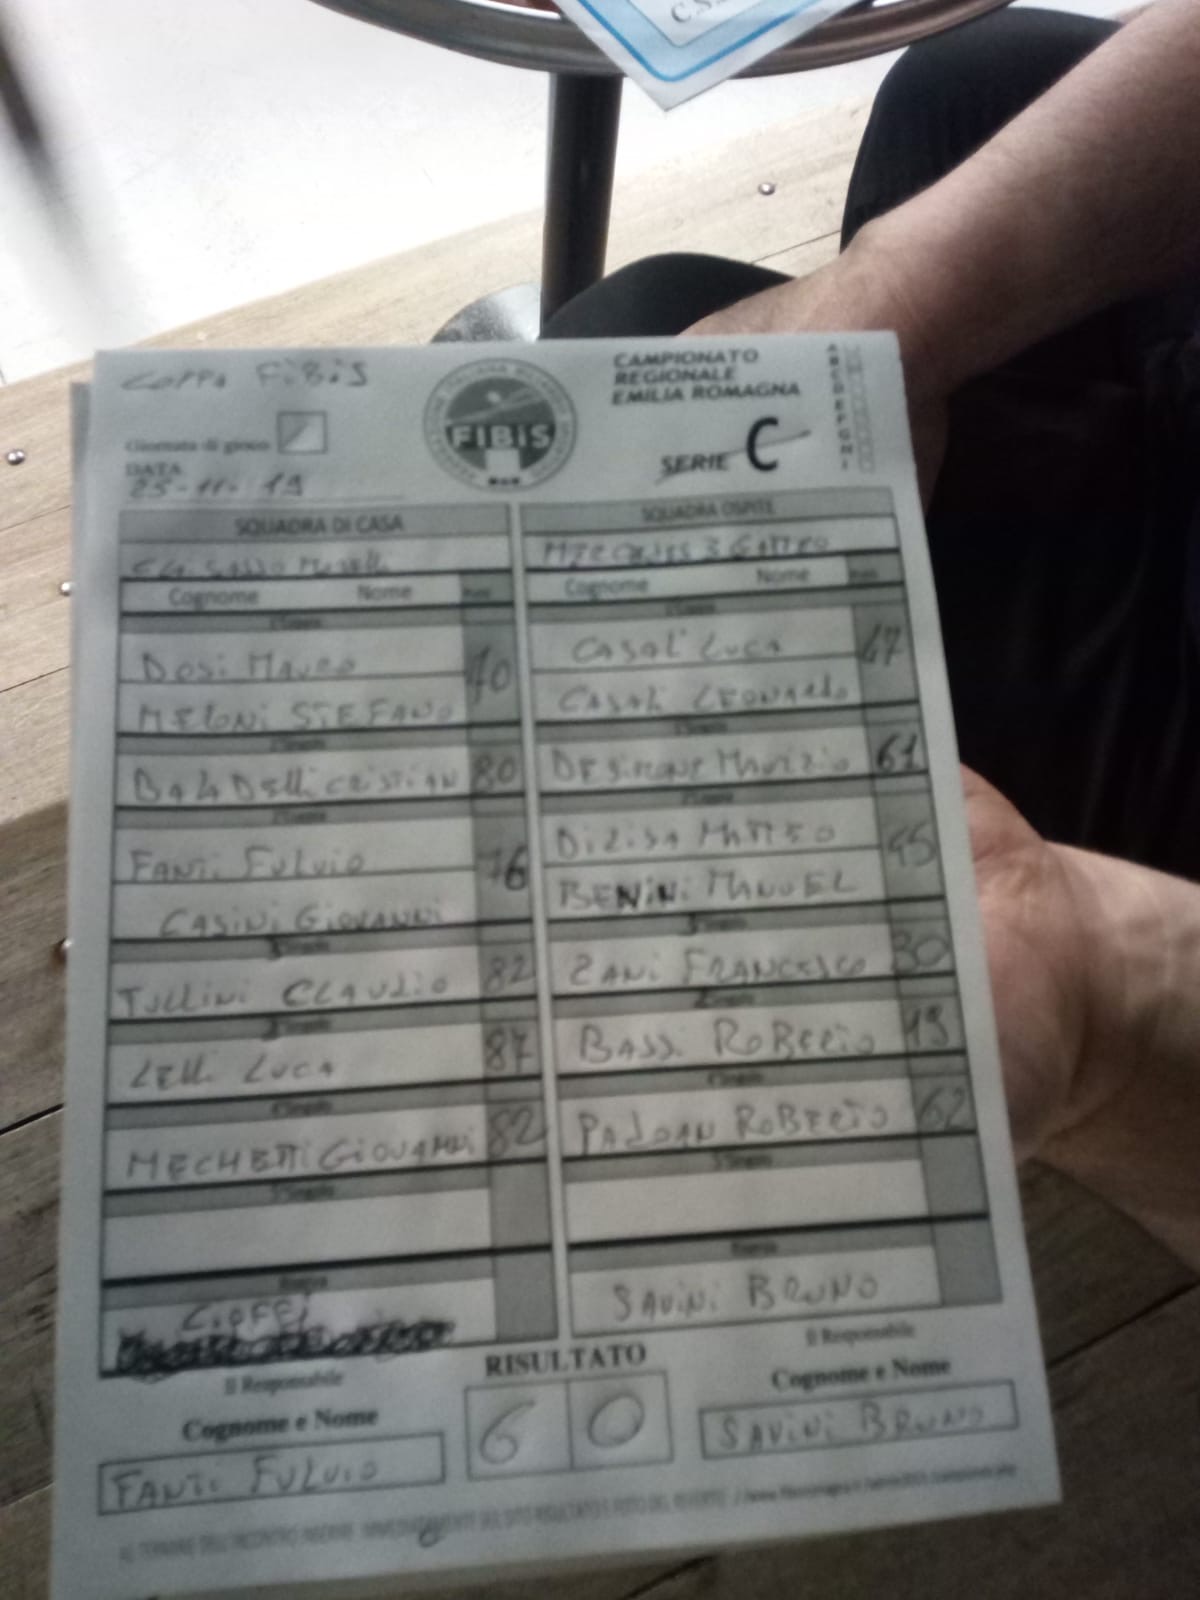 C.S.
COPPA FIBIS
CAMPIONATO
REGIONALE
EMILIA ROMAGNA
FIBiS
SERIE C
Giornata di gioco
DATA
25-11-19
SQUADRA DI CASA
SQUADRA OSPITE
Cognome Nome
Cognome Nome
DOSI MAURO
MELONI STEFANO
70
CASALI LUCA
CASALI LEONARDO
67
BALADELLI CRISTIAN 80
DESIMONE MAURIZIO 61
FANTI FULVIO
CASINI GIOVANNI
76
MATTEO
BENINI MANUEL
45
TULLINI CLAUDIO 82
ZANI FRANCESCO 30
LELLI LUCA 87
BASSI ROBERTO 19
MECHETTI GIOVANNI 82
PADOAN ROBERTO 62
Riserva
CIOFFI
Riserva
SAVINI BRUNO
Il Responsabile
Cognome e Nome
FANTI FULVIO
RISULTATO
6 0
Il Responsabile
Cognome e Nome
SAVINI BRUNO